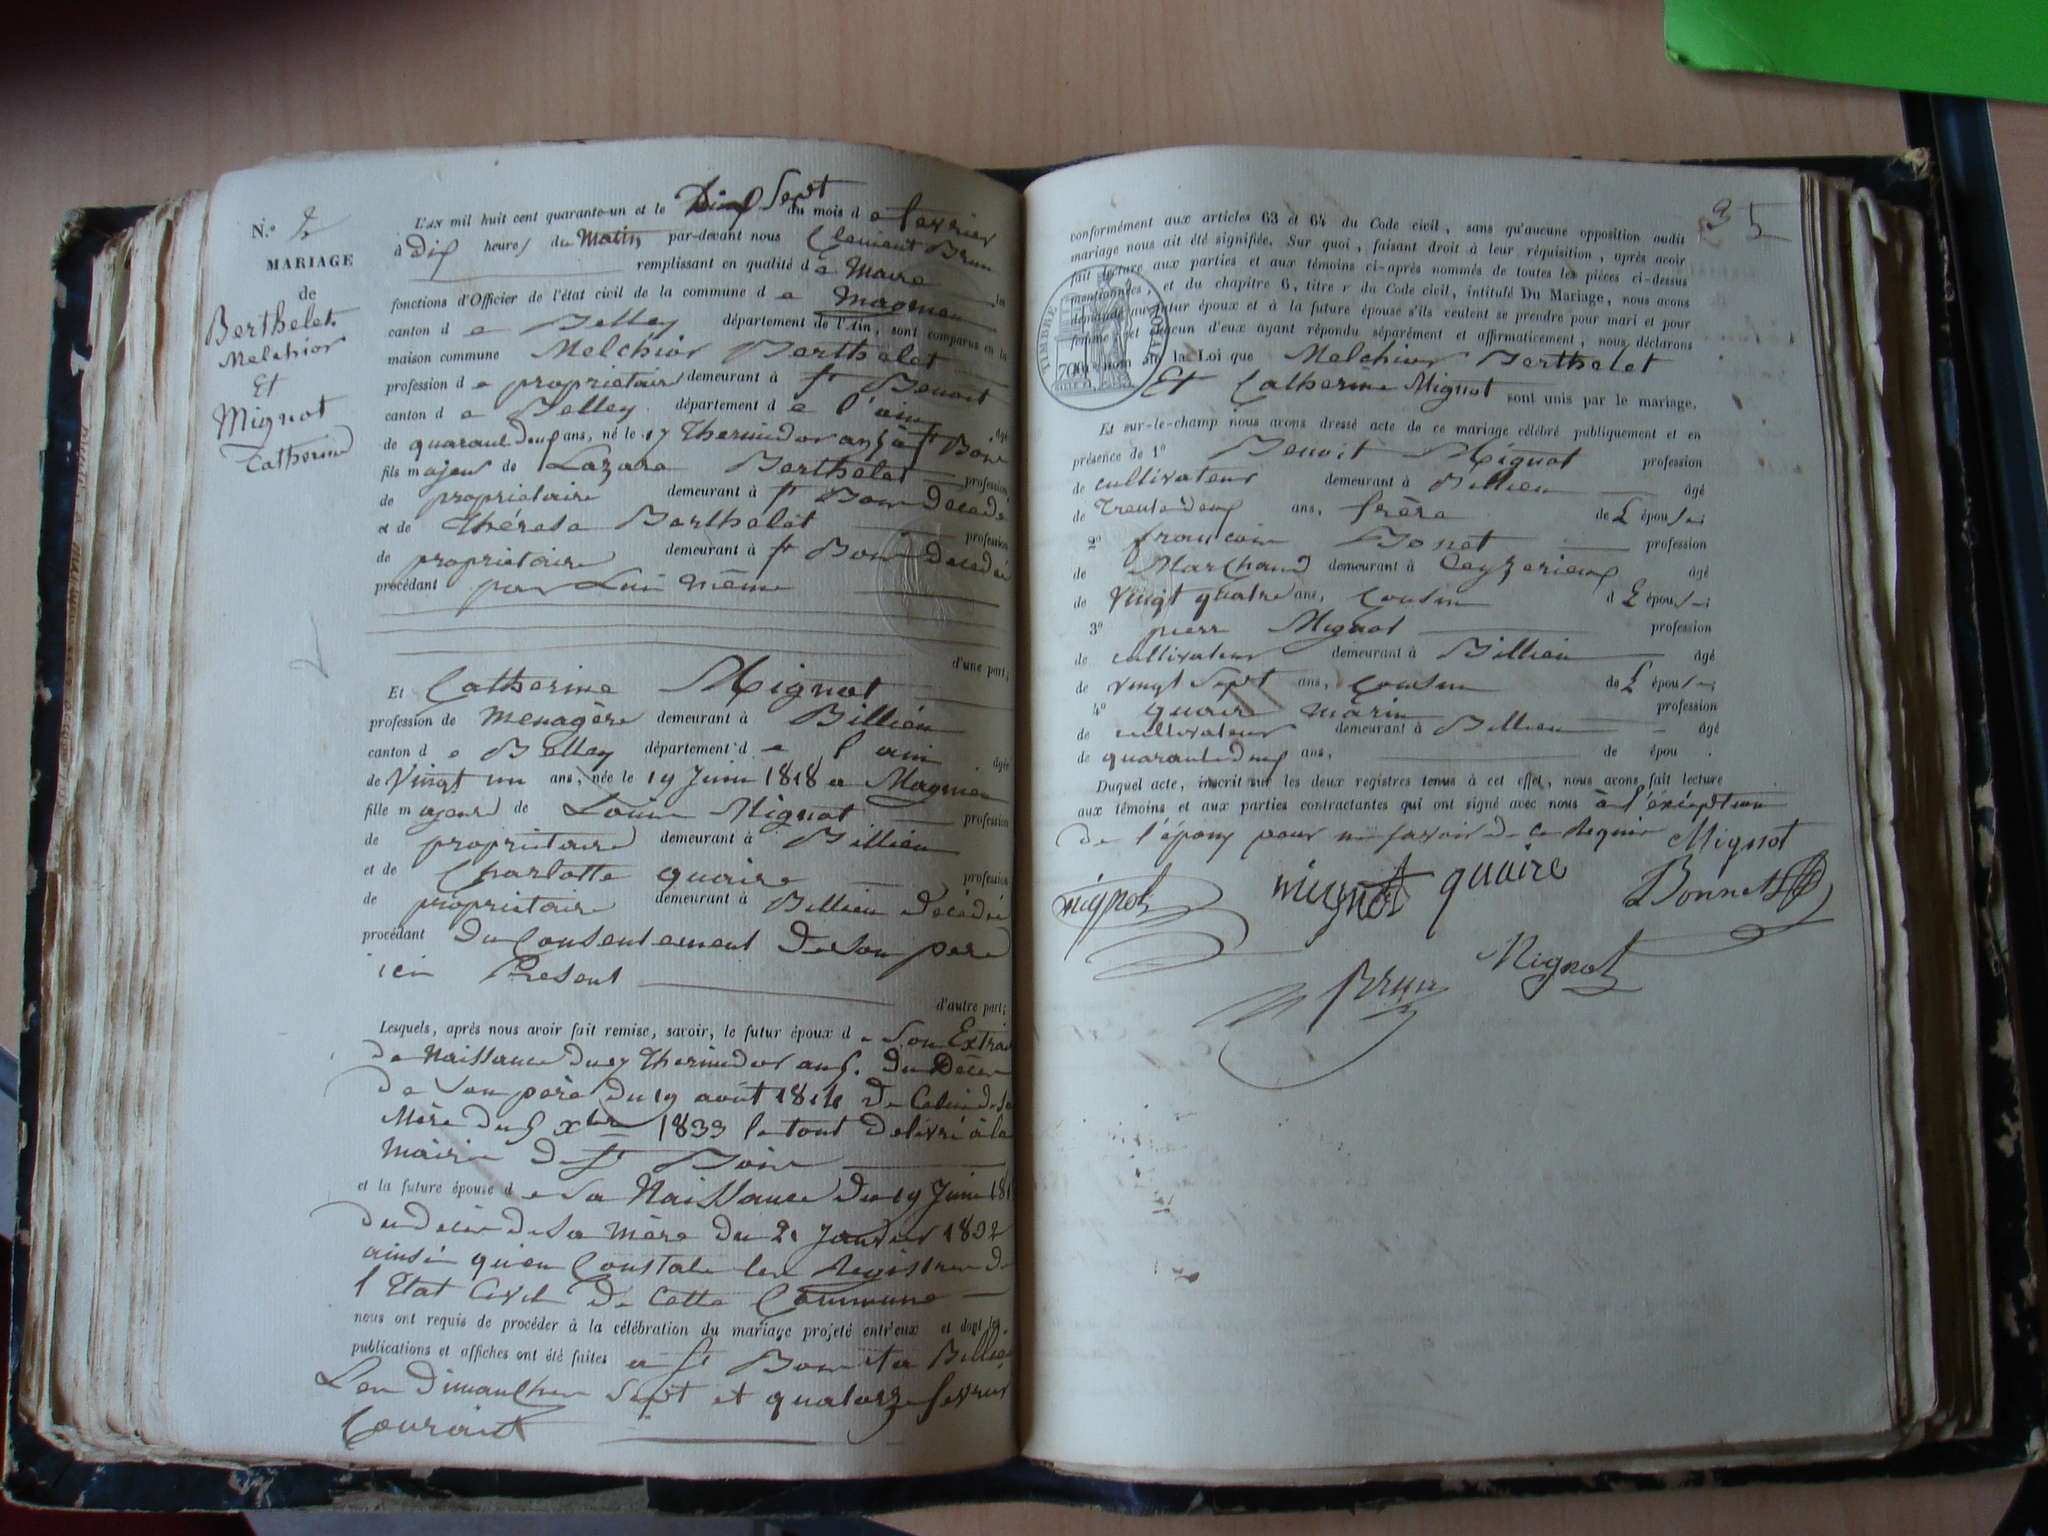 N.° 2
MARIAGE
de
Berthelet
Melchior
Et
Mignot
Catherine
L'AN mil huit cent quarante-un et le Dix Sept du mois d e fevrier
à Dix heures du Matin par-devant nous Clement Brun
remplissant en qualité d e Maire les
fonctions d'Officier de l'état civil de la commune d e Magnieu
canton d e Belley département de l'Ain, sont comparus en la
maison commune Melchior Berthelet
profession d e propriétaire demeurant à St Benoit
canton d e Belley département d e l'ain âgé
de quarante deux ans, né le 17 Thermidor an 6 à St Bois
fils majeur de Lazare Berthelet profession
de propriétaire demeurant à St Bois Décédé
et de Thérèse Berthelot profession
de propriétaire demeurant à St Bois Décédée
procédant par Lui même
d'une part;
Et Catherine Mignot
profession de Menagère demeurant à Billieu
canton d e Belley département d e l'ain âgée
de Vingt un ans, née le 19 Juin 1818 a Magnieu
fille majeure de Louis Mignot profession
de propriétaire demeurant à Billieu
et de Charlotte quaire profession
de propriétaire demeurant à Billieu Décédée
procédant du Consentement de son père
ici Présent
d'autre part;
Lesquels, après nous avoir fait remise, savoir, le futur époux d e son Extrait
de Naissance du 17 Thermidor an 6. du Décès
de son père du 19 août 1814 de Celui de sa
Mère du 5 Xbre 1833 le tout délivré à la
Mairie de St Bois
et la future épouse d e sa Naissance du 19 Juin 181
du décès de sa mère du 21 Janvier 1832
ainsi qu'en Constate les Registres de
l'Etat Civil de Cette Commune
nous ont requis de procéder à la célébration du mariage projeté entr'eux et dont les
publications et affiches ont été faites a St Bois et a Billieu
Les dimanches Sept et quatorze fevrier
Courant
35
conformément aux articles 63 et 64 du Code civil, sans qu'aucune opposition audit
mariage nous ait été signifiée. Sur quoi, faisant droit à leur réquisition, après avoir
fait lecture aux parties et aux témoins ci-après nommés de toutes les pièces ci-dessus
mentionnées, et du chapitre 6, titre v du Code civil, intitulé Du Mariage, nous avons
demandé au futur époux et à la future épouse s'ils veulent se prendre pour mari et pour
femme; et chacun d'eux ayant répondu séparément et affirmativement, nous déclarons
au nom de la Loi que Melchior Berthelet
Et Catherine Mignot sont unis par le mariage.
TIMBRE ROYAL
70
Et sur-le-champ nous avons dressé acte de ce mariage célébré publiquement et en
présence de 1° Benoit Mignot profession
de cultivateur demeurant à Billieu âgé
de Trente deux ans, frère de L épouse
2° françois Bonet profession
de Marchand demeurant à Ceyzerieux âgé
de Vingt quatre ans, Cousin d L épouse
3° pierre Mignot profession
de cultivateur demeurant à Billieu âgé
de vingt Sept ans, Cousin de L épouse
4° quaire marin profession
de cultivateur demeurant à Billieu âgé
de quarante deux ans, de épou .
Duquel acte, inscrit sur les deux registres tenus à cet effet, nous avons fait lecture
aux témoins et aux parties contractantes qui ont signé avec nous à l'éxéption
de l'époux pour ne savoir de ce Requis Mignot
mignot mignot quaire Bonnet
Brun Mignot